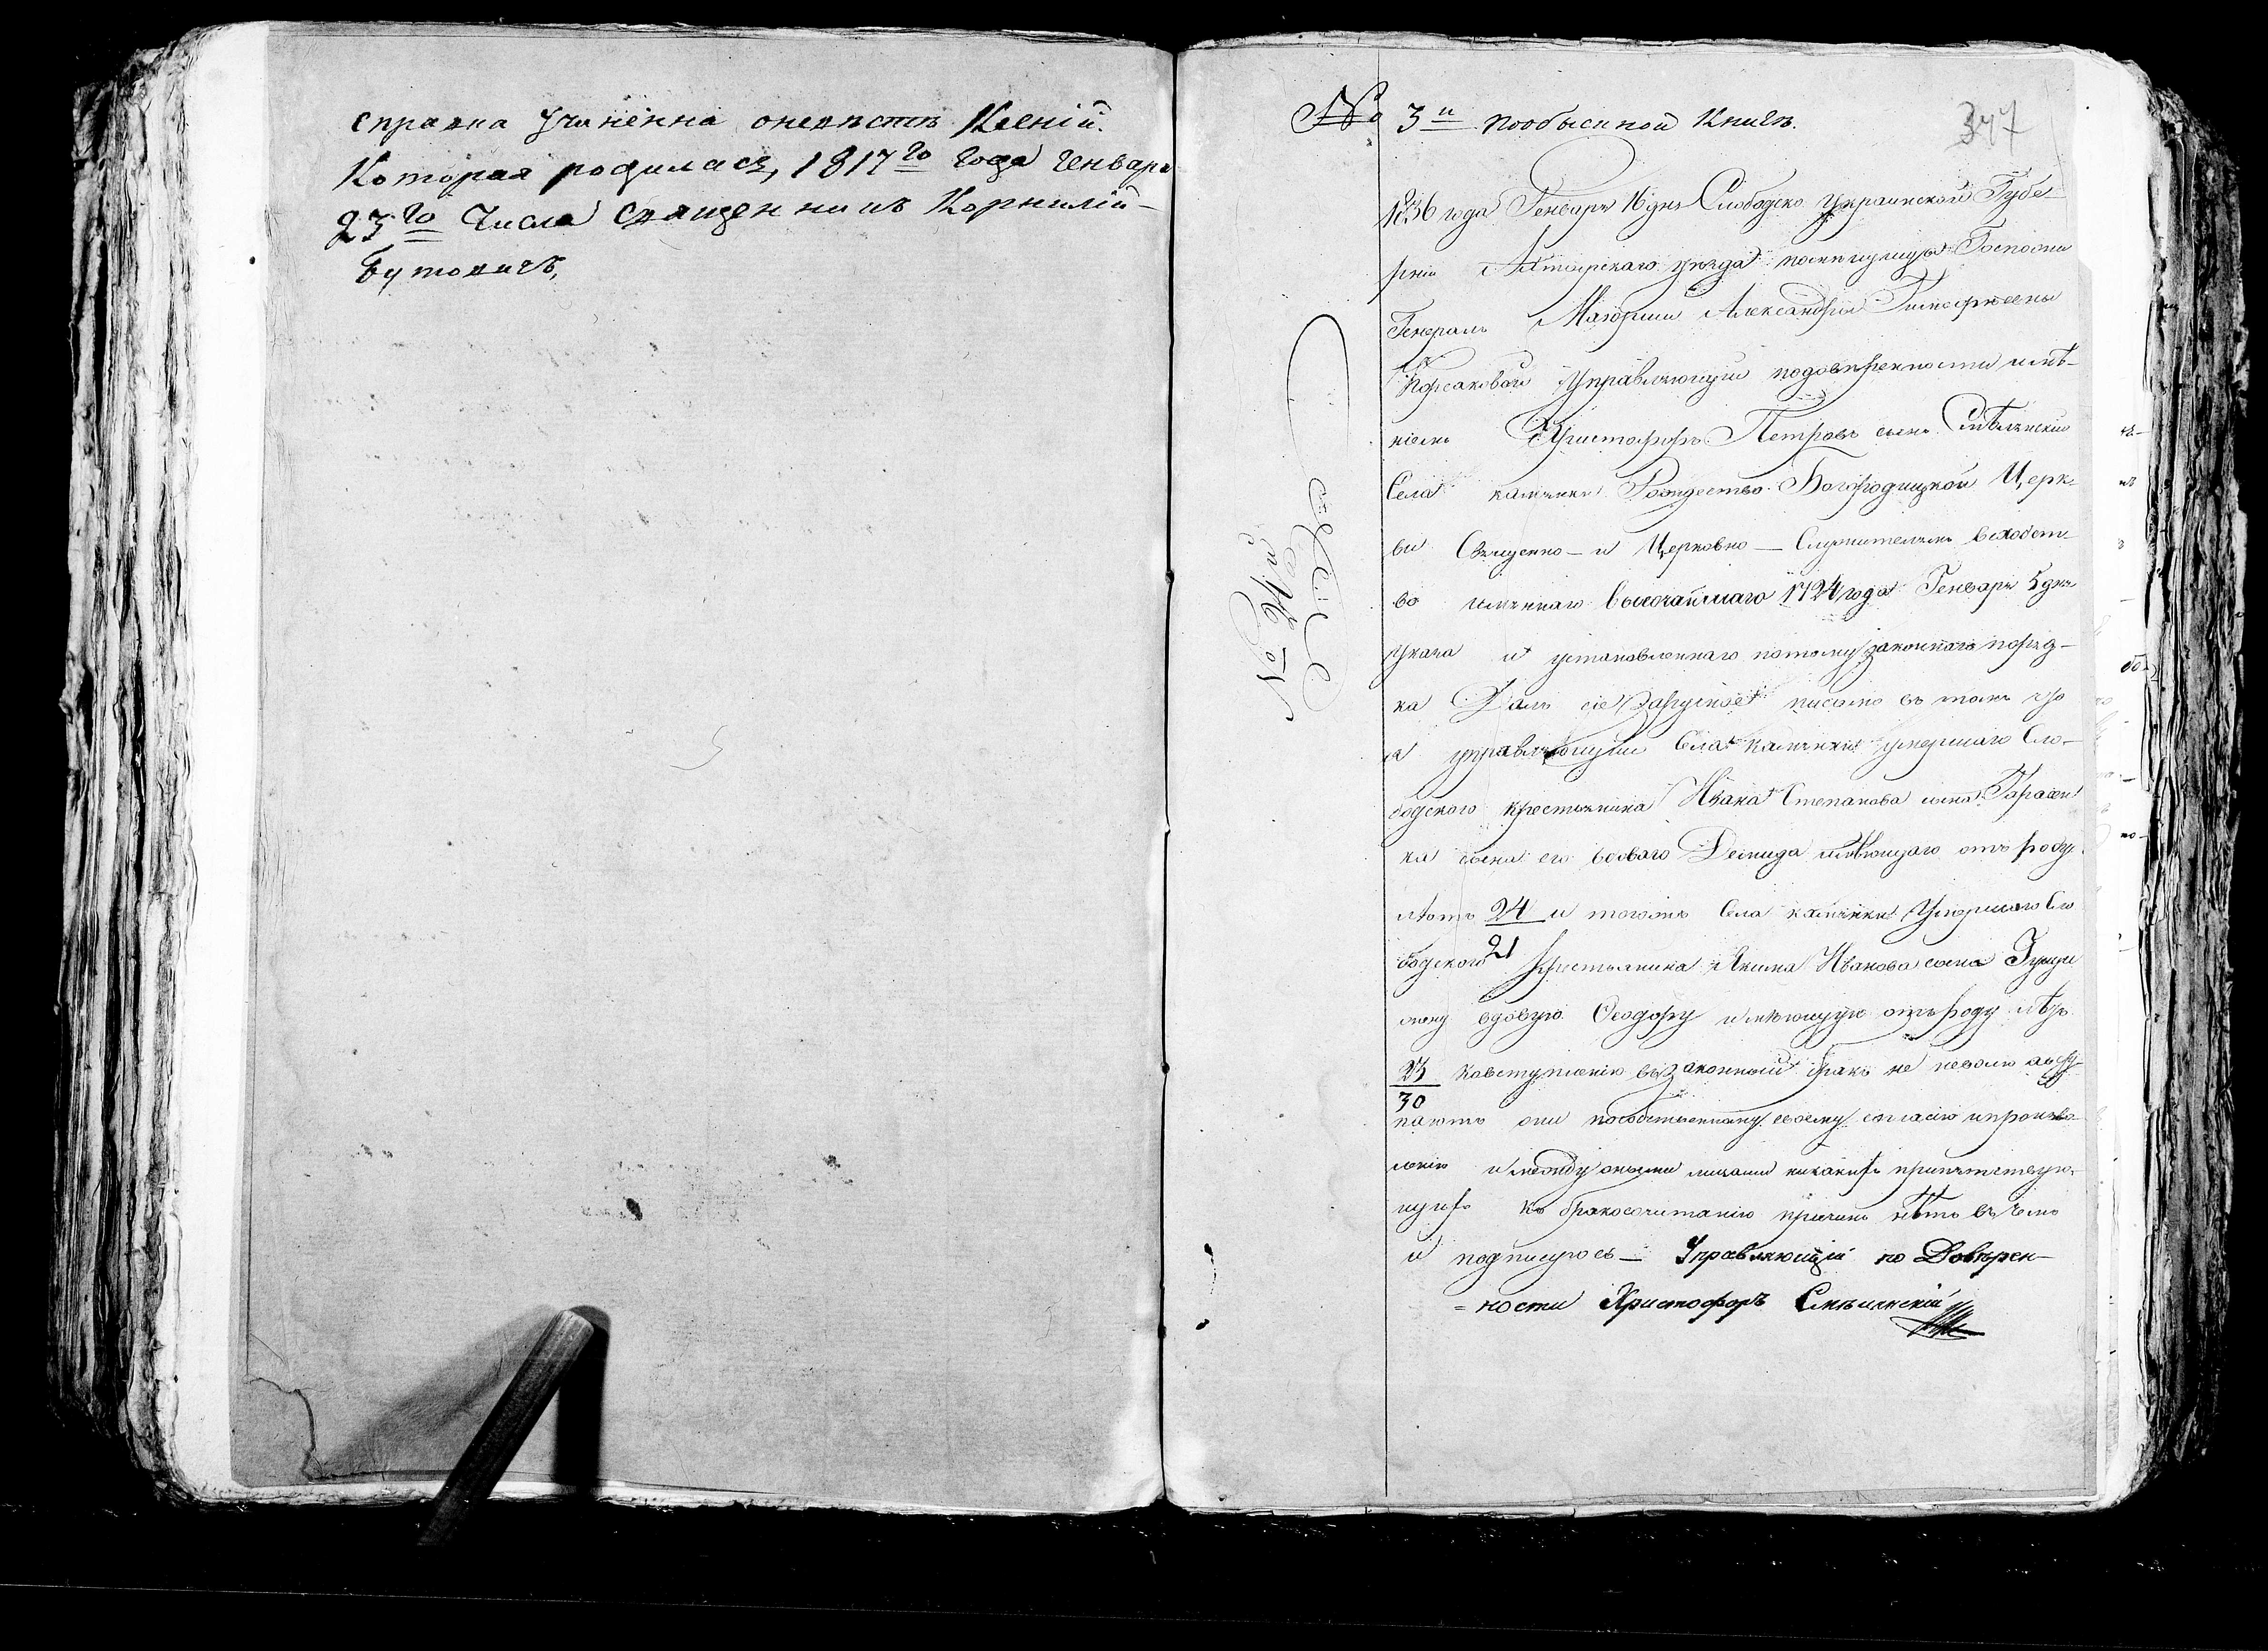 справка учиненна оневѣстѣ Ксенiй.
Которая родилась, 1817го года Генваря
23го Числа священникъ Корнилiй
Бутовичъ,
№ 3й пообыскной Книгѣ.
347
1836 года Генваря 16 дня Слободско Украинской Губе-
рнiи Ахтырскаго уезда помещицы Госпожи
Генералъ Маiорши Александры Тимофеевны
Корсаковой Управляющiй подовѣренности имѣ-
нiемъ Христофоръ Петровъ сынъ Смѣлянскiй
Села камянки Рождество Богородицкой Церк-
ви Священно- и Церковно- Служителямъ
во имяннаго высочайшаго 1724 года Генваря 5 дня
указа и установленнаго потому законнаго поряд-
ка Далъ сiе Заручное письмо въ томъ что
я управляющiй Села камянки умершаго Сло-
бодского крестьянина Ивана Степанова сына Гарасен
ка сына его Демида имѣющаго отъ роду
лѣтъ 24 и тогожъ Села камянки Умершаго Сло
бодского 21 Крестьянина Якима Иванова сына
вдовую Феодору имѣющую отъ роду лѣтъ
23 ковступленiю въ законный бракъ не неволю
30
пають они пособственному своему согласiю ипроизво
ленiю и между оными лицами никакихъ припятствую-
щихъ къ бракосочитанiю причинъ нѣтъ въ чемъ
и подписуюсь- Управляющiй по Довѣрен-
=ности Христофоръ Смѣлянскiй
№ 24й